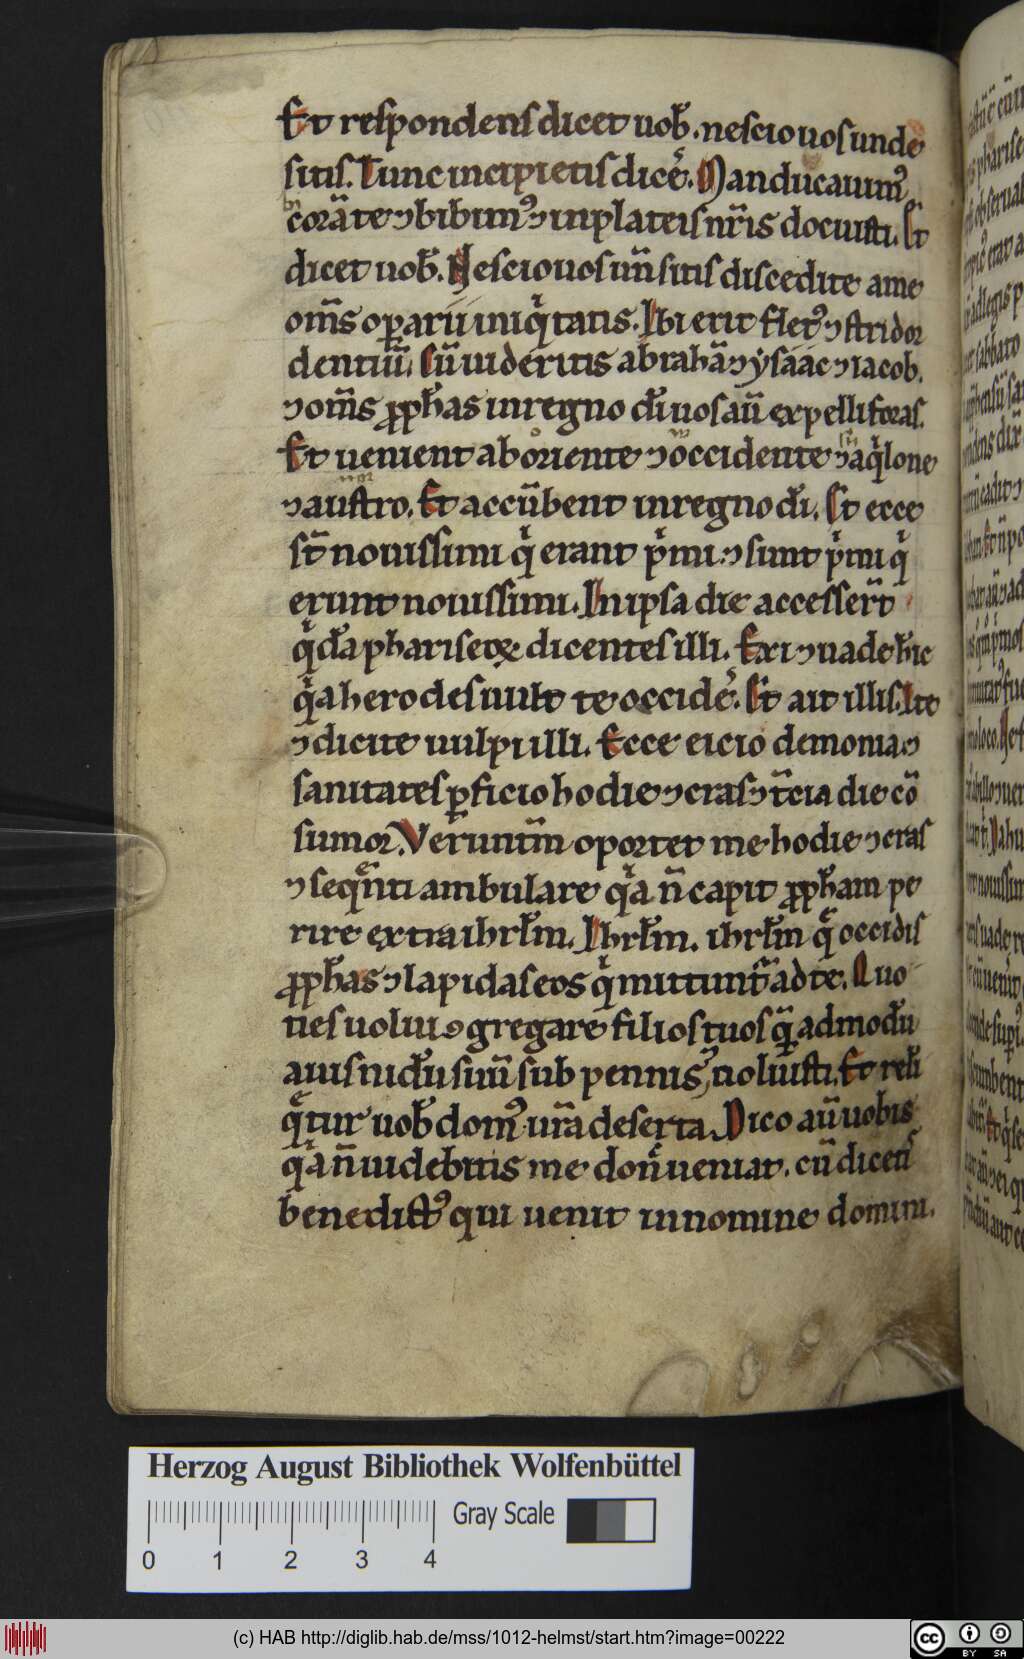 Et respondens dicet uob̄. nescio uos unde
sitis. Tunc incipietis dicer̄. Manducauimꝰ
corā te ⁊ bibimꝰ ⁊ in plateis nr̄is docuisti. Et
dicet uob̄. Nescio uos un̄ sitis discedite a me
om̄s oꝑarii iniqͥtatis. Ibi erit fletꝰ ⁊ stridor
dentiū. Cū uideritis abrahā ⁊ ysáác ⁊ iacob.
⁊ om̄s ꝓph̄as in regno dī uos aū expelli foras.
Et uenient ab oriente ⁊ occidente ⁊ aqͥlone
⁊ austro. Et accūbent in regno dī. Et ecce
st̄ nouissimi qͥ erant pͥmi. ⁊ sunt pͥmi qͥ
erunt nouissimi. In ipsa die accesser̄t
qͥdā phariseoꝝ dicentes illi. Exi ⁊ uade hic
qͥa herodes uult te occider̄. Et ait illis. Ite
⁊ dicite uulpi illi. Ecce eicio demonia ⁊
sanitates ꝑficio hodie ⁊ cras ⁊ t̄cia die cō
sumor. Verunt̄m oportet me hodie ⁊ cras
⁊ seqn̄ti ambulare qͥa n̄ capit ꝓph̄am pe
rire extra ihrłm. Ihrłm. ihrłm q̄ occidis
ꝓph̄as ⁊ lapidas eos qͥ mittunt̄ ad te. Quo
ties uolui ꝯgregare filios tuos qͣ̄ admodū
auis nidū suū sub pennis ⁊ noluisti. Et relī
q̄tur uob̄ domꝰ ur̄a deserta. Dico aū uobis
qͥa n̄ uidebitis me don̄ ueniat. cū diceti᷒
benedictꝰ qui uenit in nomine domini.
Herzog August Bibliothek Wolfenbüttel
0 1 2 3 4
Gray Scale
(c) HAB http://diglib.hab.de/mss/1012-helmst/start.htm?image=00222
cc BY SA